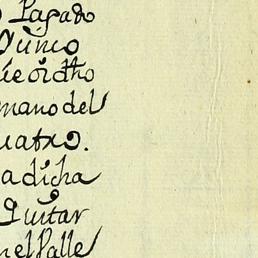 Pagado
Quinco
üe oi dho
mano del
uatro.
a dicha
Quitar
n el Valle